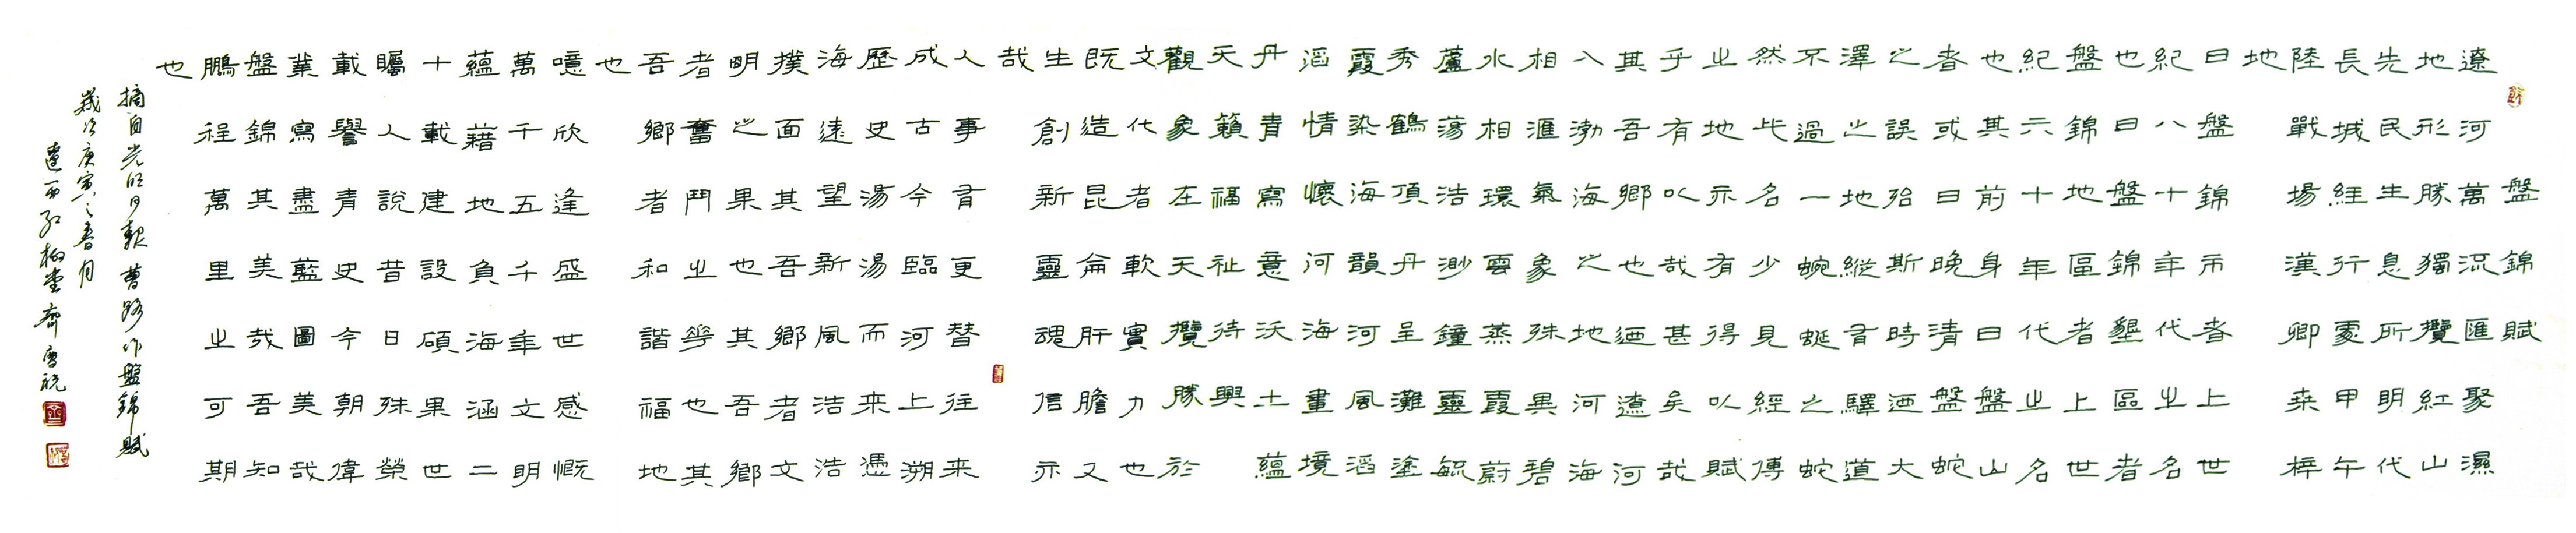 盤錦賦
遼河萬流匯聚濕
地形勝獨攬紅山
先民生息所明代
長城經行處甲午
陸戰場漢卿桑梓
地
日盤錦市者上世
紀八十年代之名
也日盤錦墾區者
盤錦地區者上世
紀六十年代之名
也其前身曰盤山
者或曰晚清盤蛇
之誤殆斯時迺大
澤之地縱有驛道
不過一蜿蜒之蛇
然此名少見經傳
之地亦有得以賦
乎有以哉甚矣哉
其吾鄉也迺遼河
入渤海之地河海
相滙氣象殊異碧
水相環雲蒸霞蔚
蘆蕩浩渺鐘靈毓
秀鶴頂丹呈灘塗
霞染海韻河風滔
滔情懷河海畫境
丹青寫意沃土蘊
天籟福祉待興
觀象在天攬勝於
文代者軟實力也
既造昆侖肝膽又
生創新靈魂信亦
哉
人事有更替往來
成古今臨河上溯
歷史湯湯而來憑
海遠望新風浩浩
撲面其吾鄉者文
明之果也其吾鄉
者奮鬥之華也其
吾鄉者和諧福地
也
噫欣逢盛世感慨
萬千五千年文明
蘊藉地負海涵二
十載建設碩果世
矚人說昔日殊榮
載譽青史今朝偉
業寫盡藍圖美哉
盤錦其美哉吾知
鵬程萬里之可期
也
摘自光明日報曹路作盤錦賦
歲次庚寅之春月
遼西紅柳堂齋